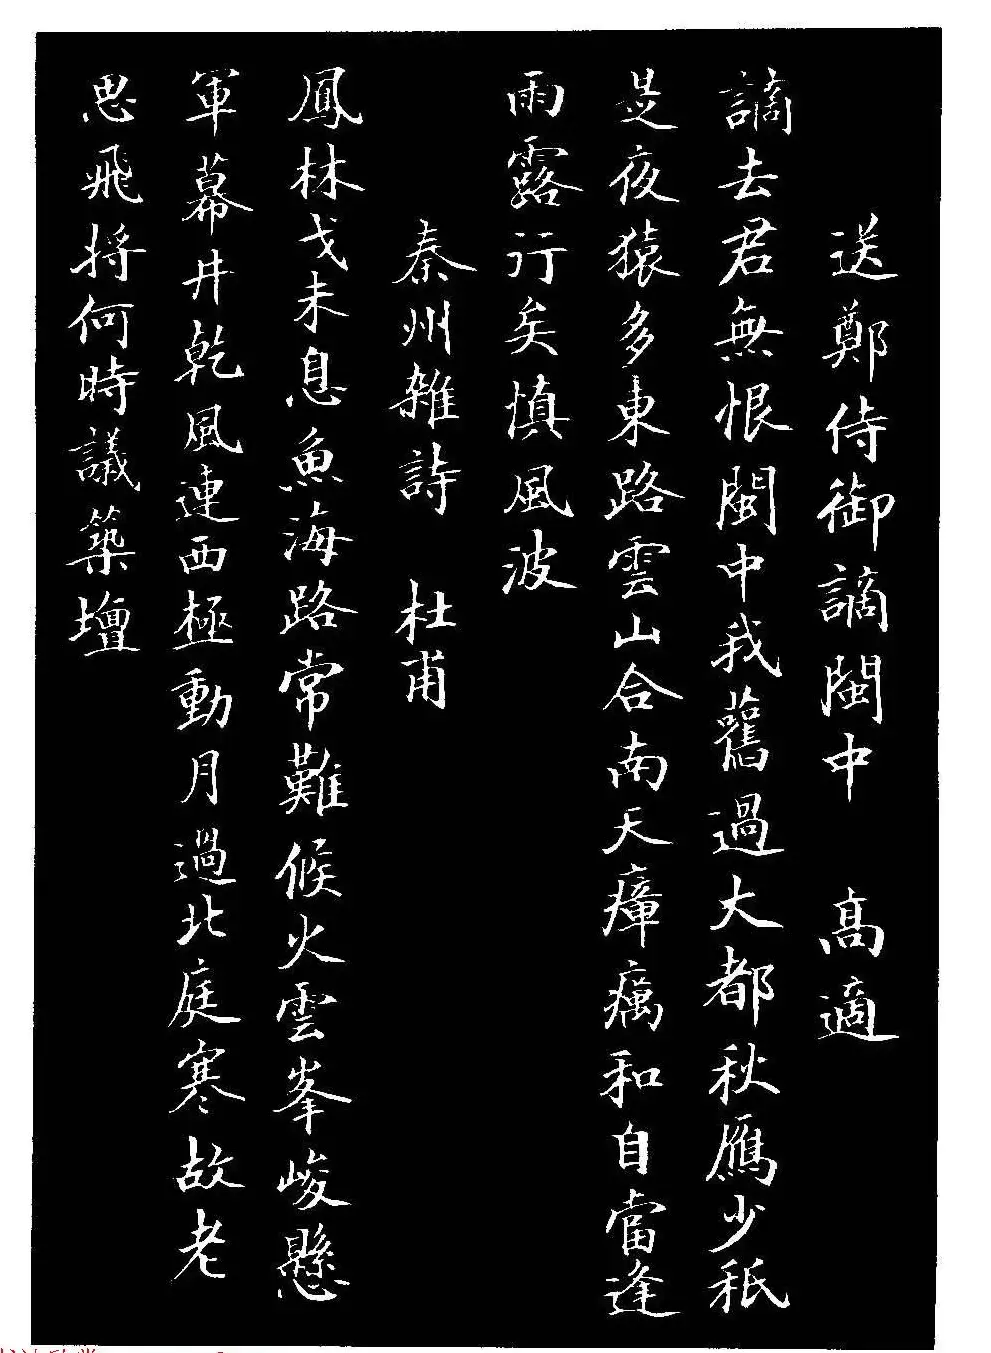 送鄭侍御謫閩中 高適
謫去君無恨閩中我舊過大都秋鴈少秖
是夜猿多東路雲山合南天瘴癘和自當逢
雨露行矣慎風波
秦州雜詩 杜甫
鳳林戈未息魚海路常難候火雲峯峻懸
軍幕井乾風連西極動月過北庭寒故老
思飛将何時議築壇